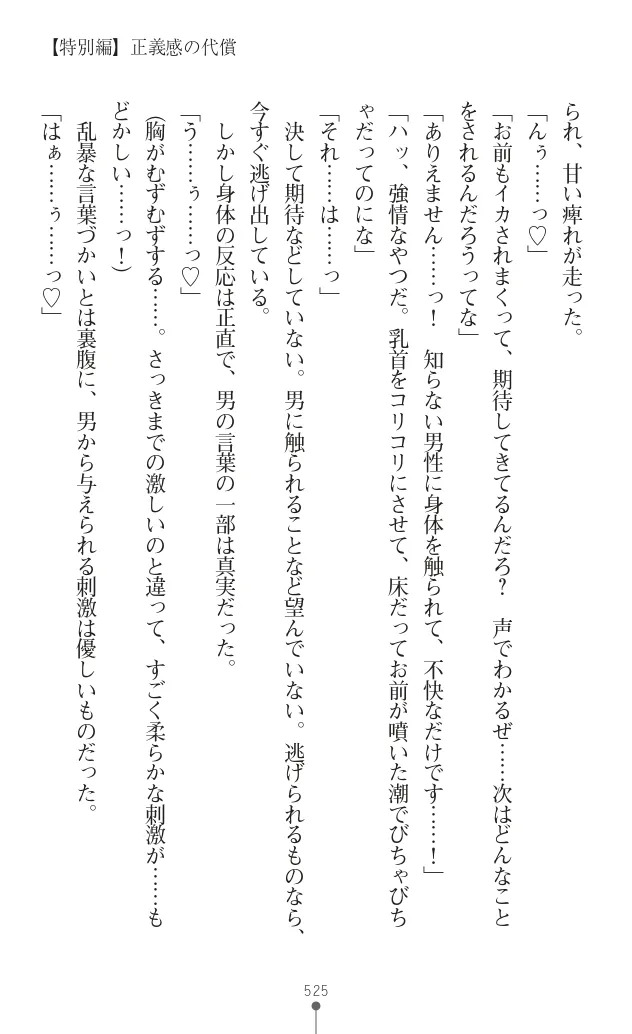 【特別編】正義感の代償
られ、甘い痺れが走った。
「んぅ……っ♡」
「お前もイカされまくって、期待してきてるんだろ？　声でわかるぜ……次はどんなこと
をされるんだろうってな」
「ありえません……っ！　知らない男性に身体を触られて、不快なだけです……！」
「ハッ、強情なやつだ。乳首をコリコリにさせて、床だってお前が噴いた潮でびちゃびち
ゃだってのにな」
「それ……は……っ」
決して期待などしていない。男に触られることなど望んでいない。逃げられるものなら、
今すぐ逃げ出している。
しかし身体の反応は正直で、男の言葉の一部は真実だった。
「う……ぅ……っ♡」
（胸がむずむずする……。さっきまでの激しいのと違って、すごく柔らかな刺激が……も
どかしい……っ！）
乱暴な言葉づかいとは裏腹に、男から与えられる刺激は優しいものだった。
「はぁ……ぅ……っ♡」
525